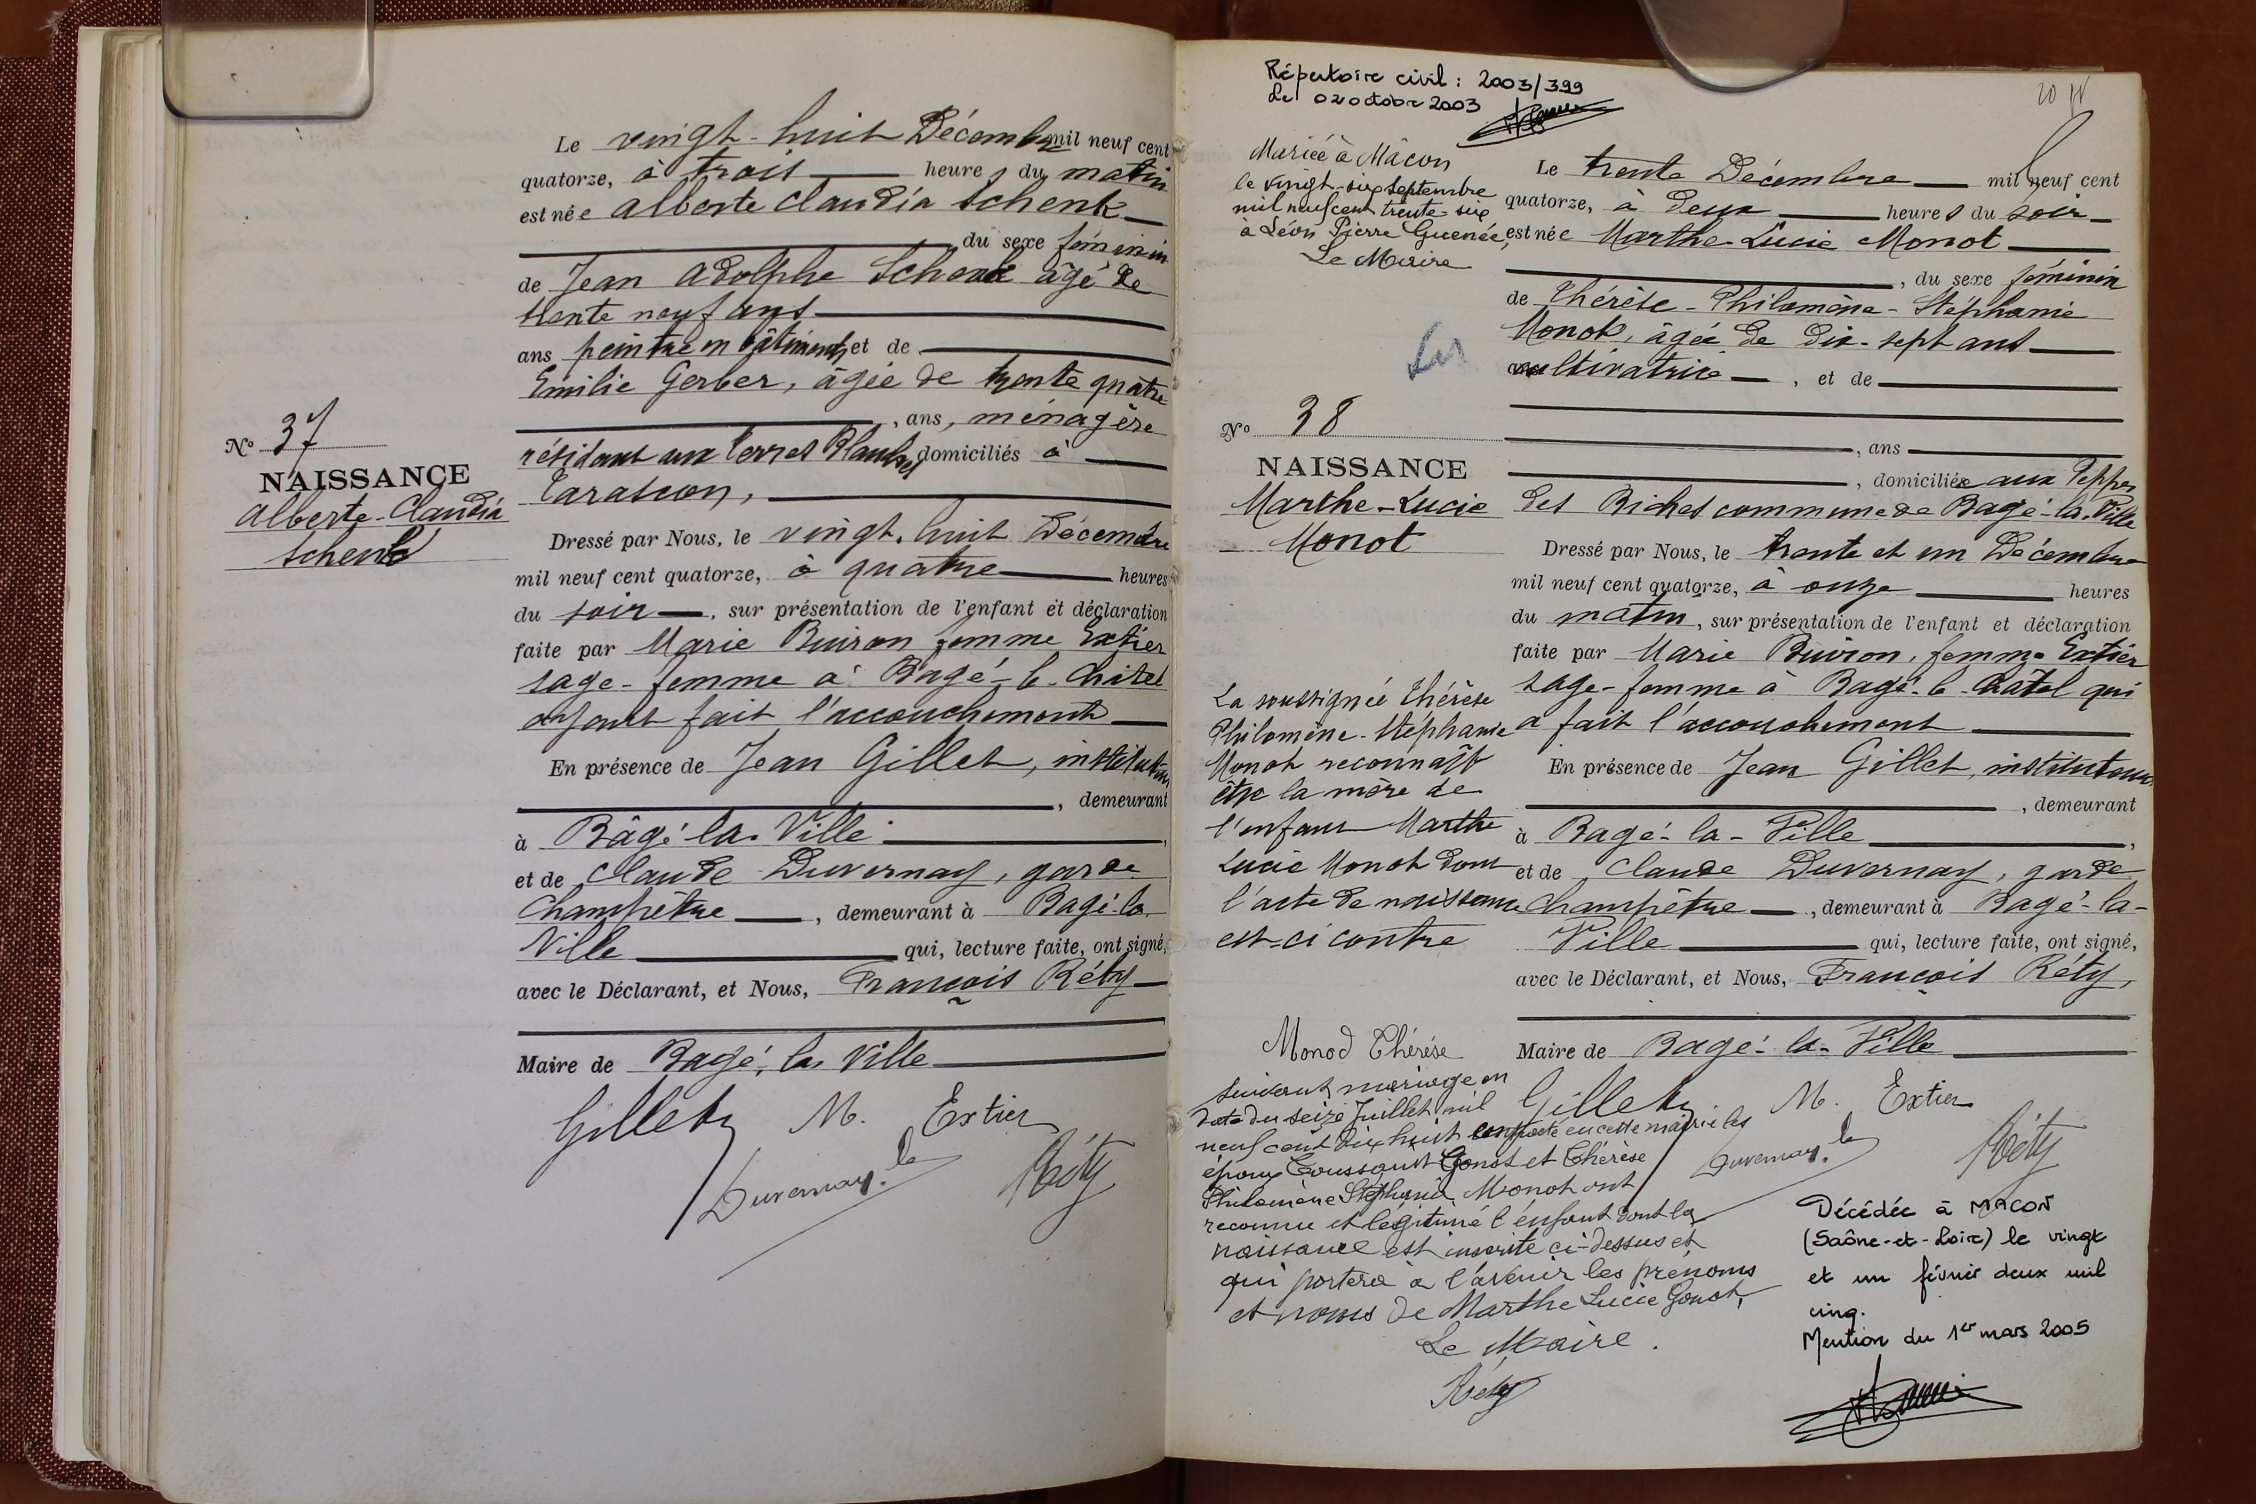 Le vingt-huit Décembre mil neuf cent
quatorze, à trois heures du matin
est née Alberte Claudia Schenk
du sexe féminin
de Jean Adolphe Schenk âgé de
trente neuf ans
ans peintre en bâtiments, et de
Emilie Gerber, âgée de trente quatre
, ans, ménagère
résidant aux Terres Blanches, domiciliés à
Tarascon,
N° 37
NAISSANCE
Alberte-Claudia
Schenk
Dressé par Nous, le vingt-huit Décembre
mil neuf cent quatorze, à quatre heures
du soir, sur présentation de l'enfant et déclaration
faite par Marie Buiron femme Extier
sage-femme à Bagé-le-Châtel
ayant fait l'accouchement
En présence de Jean Gillet, instituteur
, demeurant
à Bâgé-la-Ville
et de Claude Duvernay, garde
Champêtre, demeurant à Bagé-la-
Ville qui, lecture faite, ont signé,
avec le Déclarant, et Nous, François Réty
Maire de Bagé-la-Ville
Gillet M. Extier
Duvernay.Cle Réty
20
Répertoire civil : 2003/399
Le 02 octobre 2003
Mariée à Mâcon
le vingt-six septembre
mil neuf cent trente-six
à Léon Pierre Guenée,
Le Maire
Le trente Décembre mil neuf cent
quatorze, à deux heures du soir
est née Marthe-Lucie Monot
, du sexe féminin
de Thérèse-Philomène-Stéphanie
Monot, âgée de dix-sept ans
cultivatrice, et de
, ans
, domiciliée aux Teppes
des Biches commune de Bagé-la-Ville
N° 38
NAISSANCE
Marthe-Lucie
Monot
Dressé par Nous, le trente et un Décembre
mil neuf cent quatorze, à onze heures
du matin, sur présentation de l'enfant et déclaration
faite par Marie Buiron, femme Extier
sage-femme à Bagé-le-Châtel qui
a fait l'accouchement
En présence de Jean Gillet, instituteur
, demeurant
à Bagé-la-Ville,
et de Claude Duvernay, garde
Champêtre, demeurant à Bagé-la-
Ville qui, lecture faite, ont signé,
avec le Déclarant, et Nous, François Réty,
Maire de Bagé-la-Ville
Gillet M. Extier
Duvernay.Cle Réty
La soussignée Thérèse
Philomène-Stéphanie
Monot reconnaît
être la mère de
l'enfant Marthe
Lucie Monot dont
l'acte de naissance
est-ci contre
Monod Thérèse
Suivant mariage en
date du seize Juillet mil
neuf cent dix huit contracté en cette mairie les
époux Toussaint Gonot et Thérèse
Philomène Stéphanie Monot ont
reconnu et légitimé l'enfant dont la
naissance est inscrite ci-dessus et
qui portera à l'avenir les prénoms
et noms de Marthe Lucie Gonot,
Le Maire.
Réty
Décédée à MACON
(Saône-et-Loire) le vingt
et un février deux mil
cinq.
Mention du 1er mars 2005